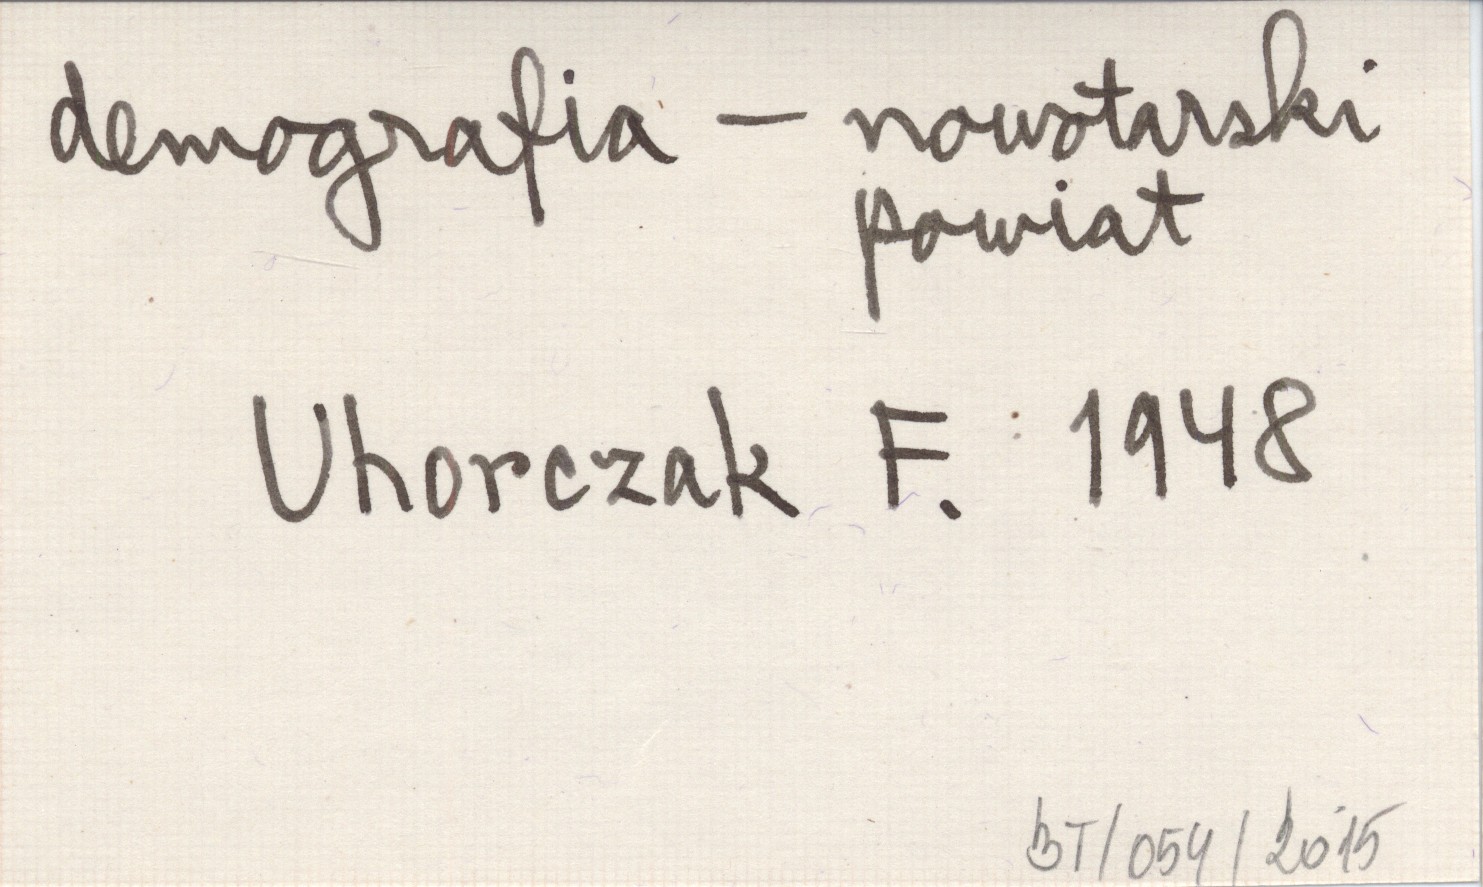 demografia – nowotarski
powiat
Uhorczak F. 1948
BT/054/2015